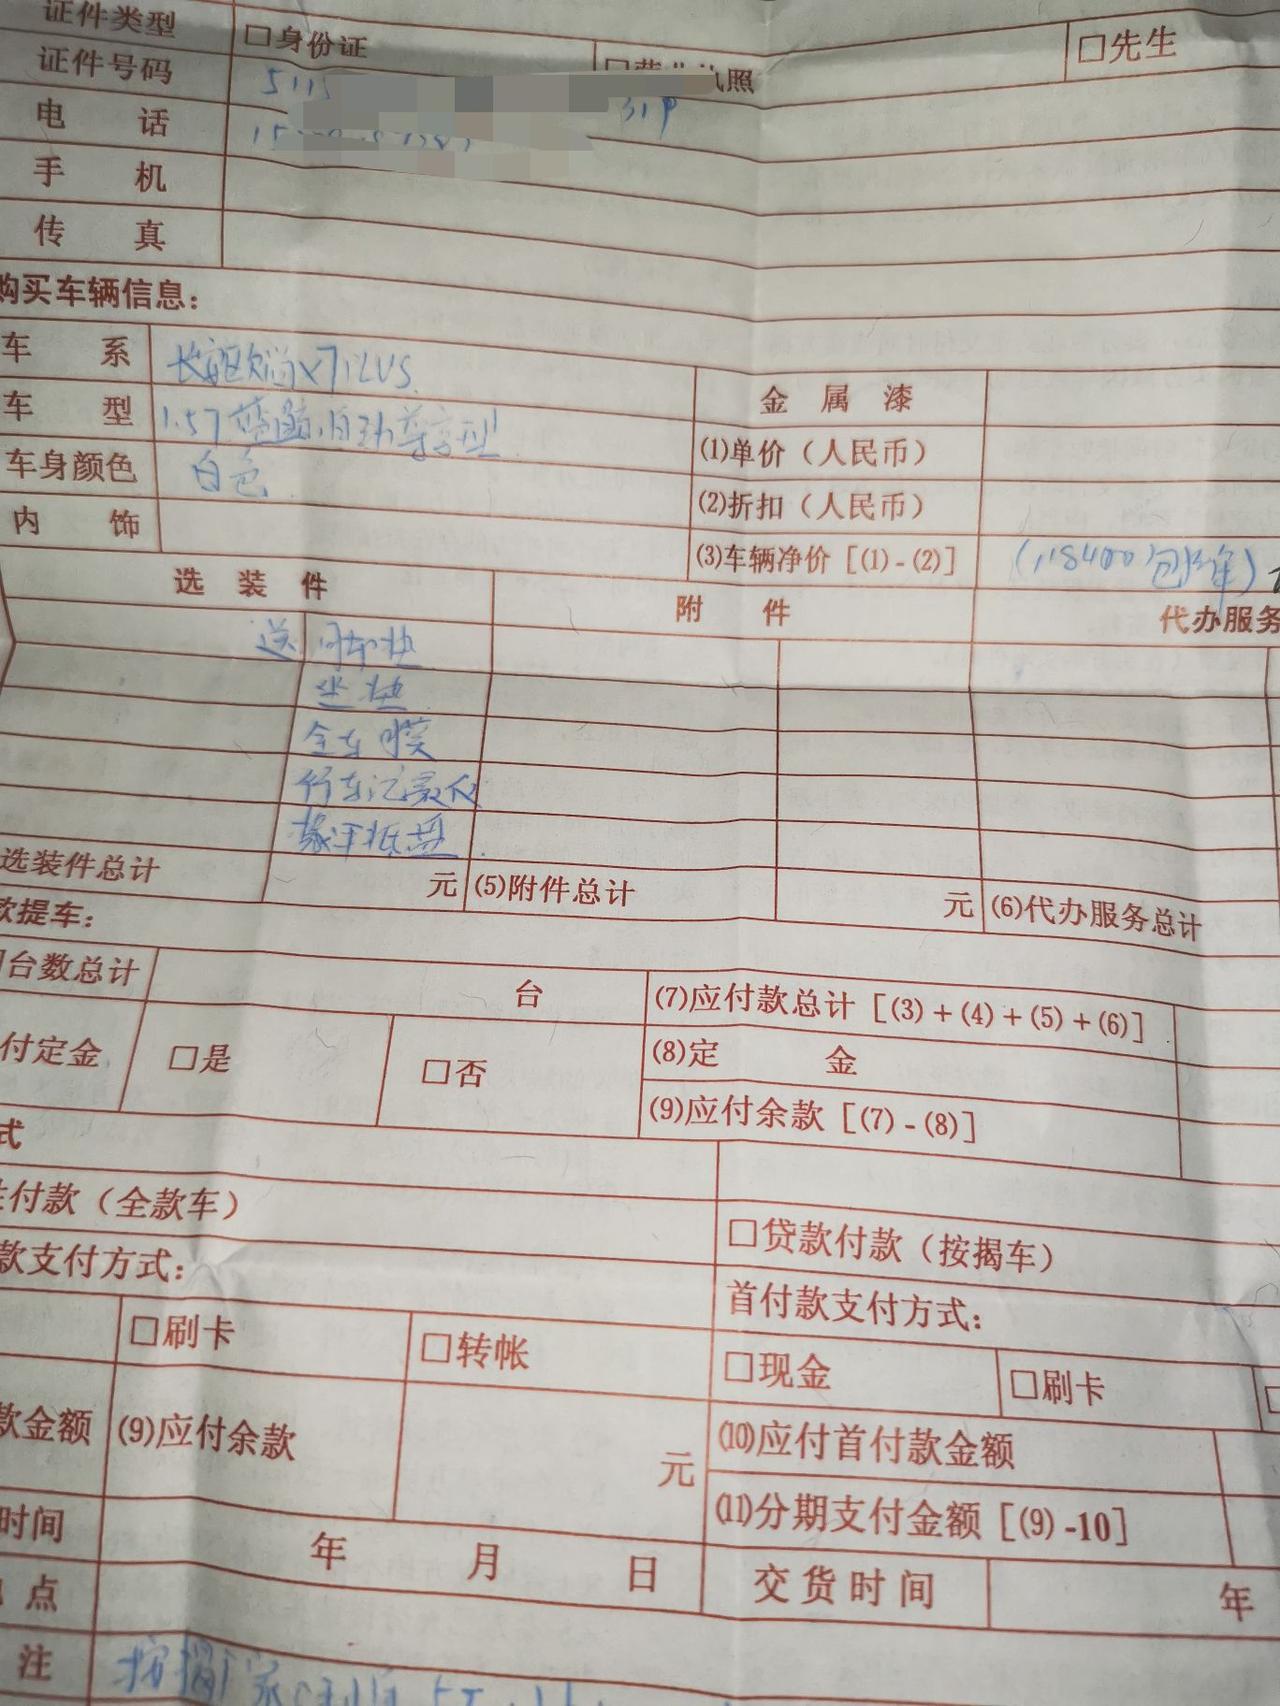 证件类型 □身份证 照 □先生
证件号码 5115
电 话
手 机
传 真
购买车辆信息：
车 系 长安欧尚X7PLUS 金 属 漆
车 型 1.5T蓝鲸自动尊享型 (1)单价（人民币）
车身颜色 白色 (2)折扣（人民币）
内 饰 (3)车辆净价［(1)-(2)］
选 装 件 附 件 代办服务
送 脚垫
坐垫
全车膜
行车记录仪
选装件总计 元 (5)附件总计 元 (6)代办服务总计
款提车：
台数总计 台 (7)应付款总计［(3)+(4)+(5)+(6)］
付定金 □是 □否 (8)定 金
(9)应付余款［(7)-(8)］
式
付款（全款车） □贷款付款（按揭车）
款支付方式： 首付款支付方式：
□刷卡 □转帐 □现金 □刷卡
款金额 (9)应付余款 元 (10)应付首付款金额
(11)分期支付金额［(9)-10］
时间 年 月 日 交货时间 年
点
注 按揭厂家